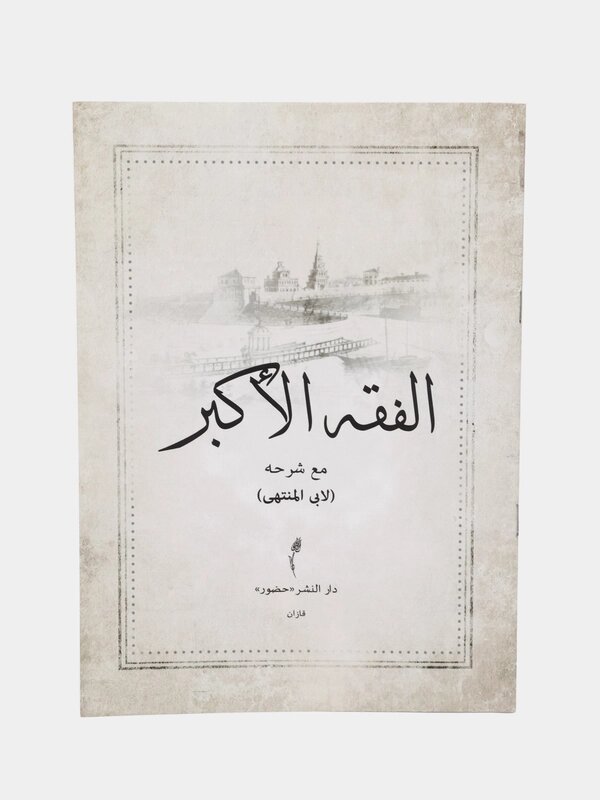 الفقه الأكبر
مع شرحه
(لابى المنتهى)
دار النشر «حضور»
قازان